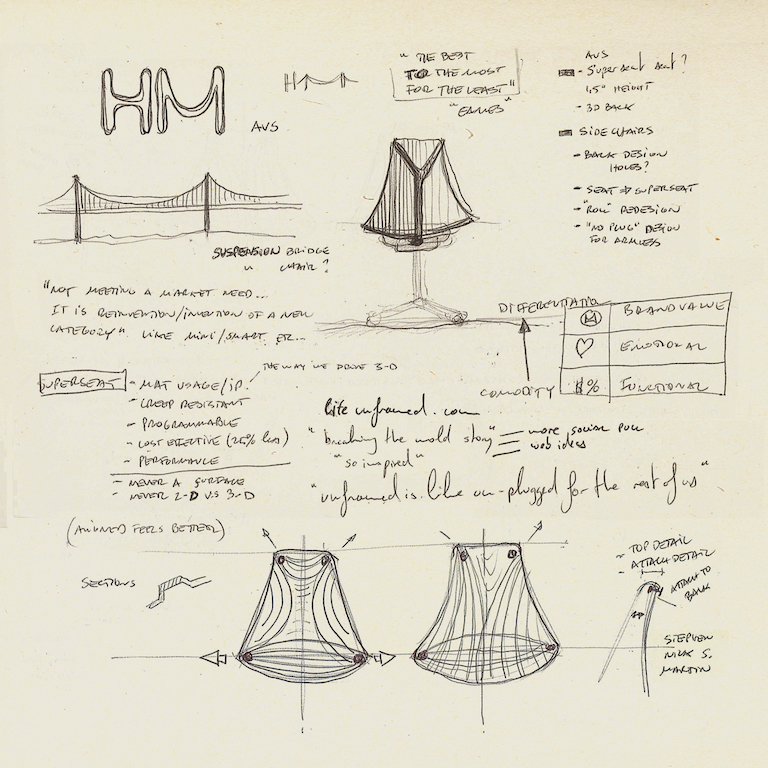 HM
AVS
HM
"THE BEST
FOR THE MOST
FOR THE LEAST"
"EAMES"
AVS
- SUPERSEAT SEAT?
1.5" HEIGHT
- 3D BACK
SIDE CHAIRS
- BACK DESIGN
HOLES?
- SEAT → SUPERSEAT
- REDESIGN
- "NO PLUG" DESIGN
FOR ARMLESS
SUSPENSION BRIDGE
CHAIR?
"NOT MEETING A MARKET NEED...
IT IS REINVENTION/INVENTION OF A NEW
CATEGORY" LIKE MINI/SMART, ETC...
DIFFERENTIATION
COMODITY
M BRAND VALUE
♡ EMOTIONAL
$% FUNCTIONAL
SUPERSEAT
THE WAY WE DROVE 3-D
- MAT USAGE/IP.
- CREEP RESISTANT
- PROGRAMMABLE
- COST EFFECTIVE (25% less)
- PERFORMANCE
- NEVER A SURFACE
- NEVER 2-D VS 3-D
life unframed.com
"breaking the mold story"
"so inspired"
more social
web ideas
"unframed is like un-plugged for the rest of us"
(ALIGNED FEELS BETTER)
SECTIONS
- TOP DETAIL
- ATTACH DETAIL
ATTACH TO
BACK
STEPHEN
NICK S.
MARTIN